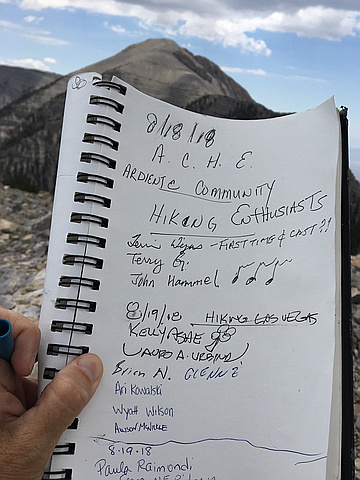 8/18/18
A. C. H. E.
ARDIENTE COMMUNITY
HIKING ENTHUSIASTS
- FIRST TIME & LAST ?!
Terry G.
John Hammel
8/19/18 HIKING LAS VEGAS
KELLY
LAURO A.
Brian N. GLENN E
Ari Kowalski
Wyatt Wilson
8.19.18
Paula Raimondi